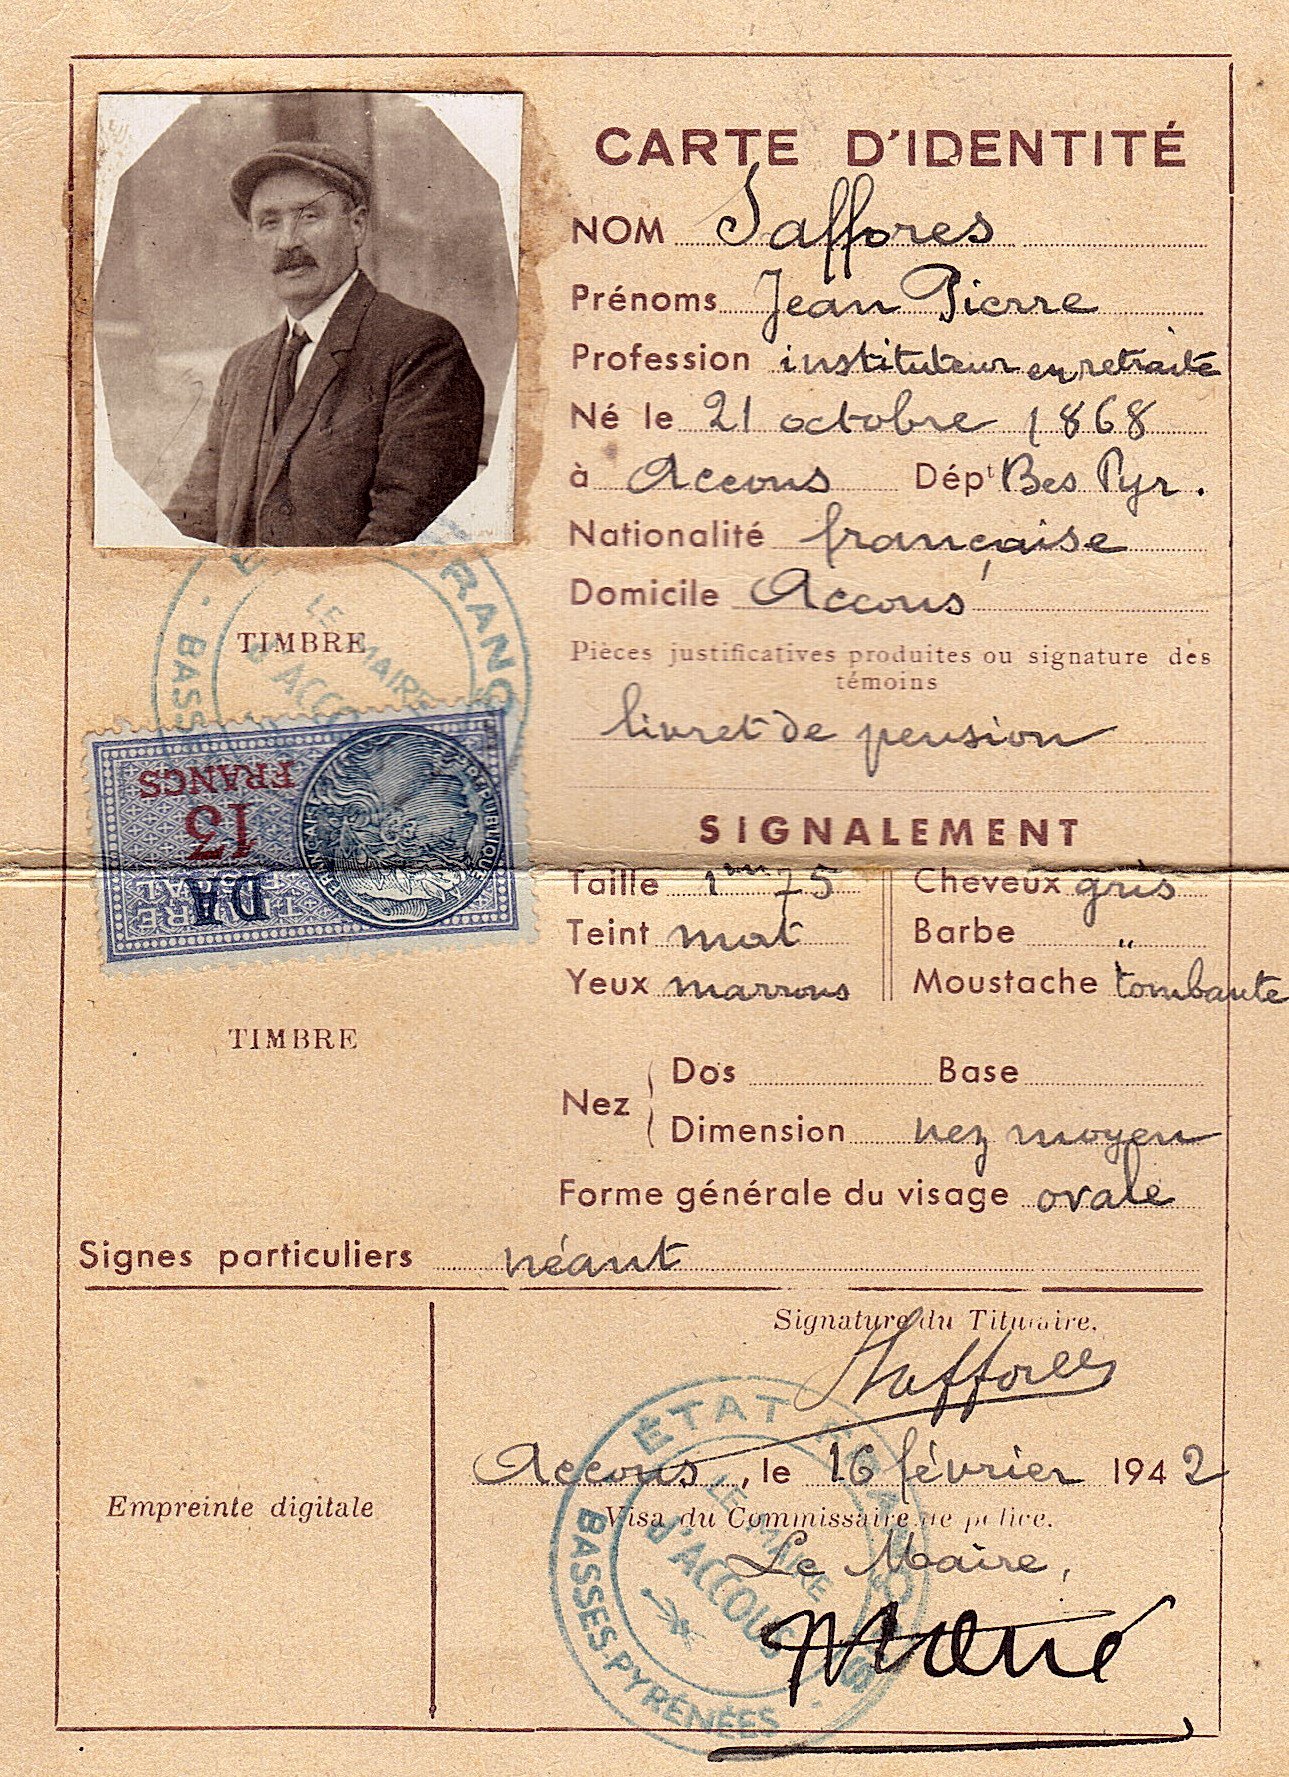 CARTE D'IDENTITÉ
NOM Saffores
Prénoms Jean Pierre
Profession instituteur en retraite
Né le 21 octobre 1868
à Accous Dépt Bes Pyr.
Nationalité française
Domicile Accous
Pièces justificatives produites ou signature des
témoins
livret de pension
SIGNALEMENT
Taille 1m75 Cheveux gris
Teint mat Barbe "
Yeux marrons Moustache tombante
Nez Dos Base
Dimension nez moyen
Forme générale du visage ovale
Signes particuliers néant
TIMBRE
LE MAIRE
d'ACCOUS
BASSES
FRANÇ
TIMBRE FISCAL
DA
13
FRANCS
RÉPUBLIQUE FRANÇAISE
TIMBRE
Empreinte digitale
Signature du Titulaire.
Saffores
Accous, le 16 février 1942
Visa du Commissaire de police.
Le Maire,
ÉTAT FRANÇAIS
LE MAIRE
d'ACCOUS
BASSES-PYRÉNÉES